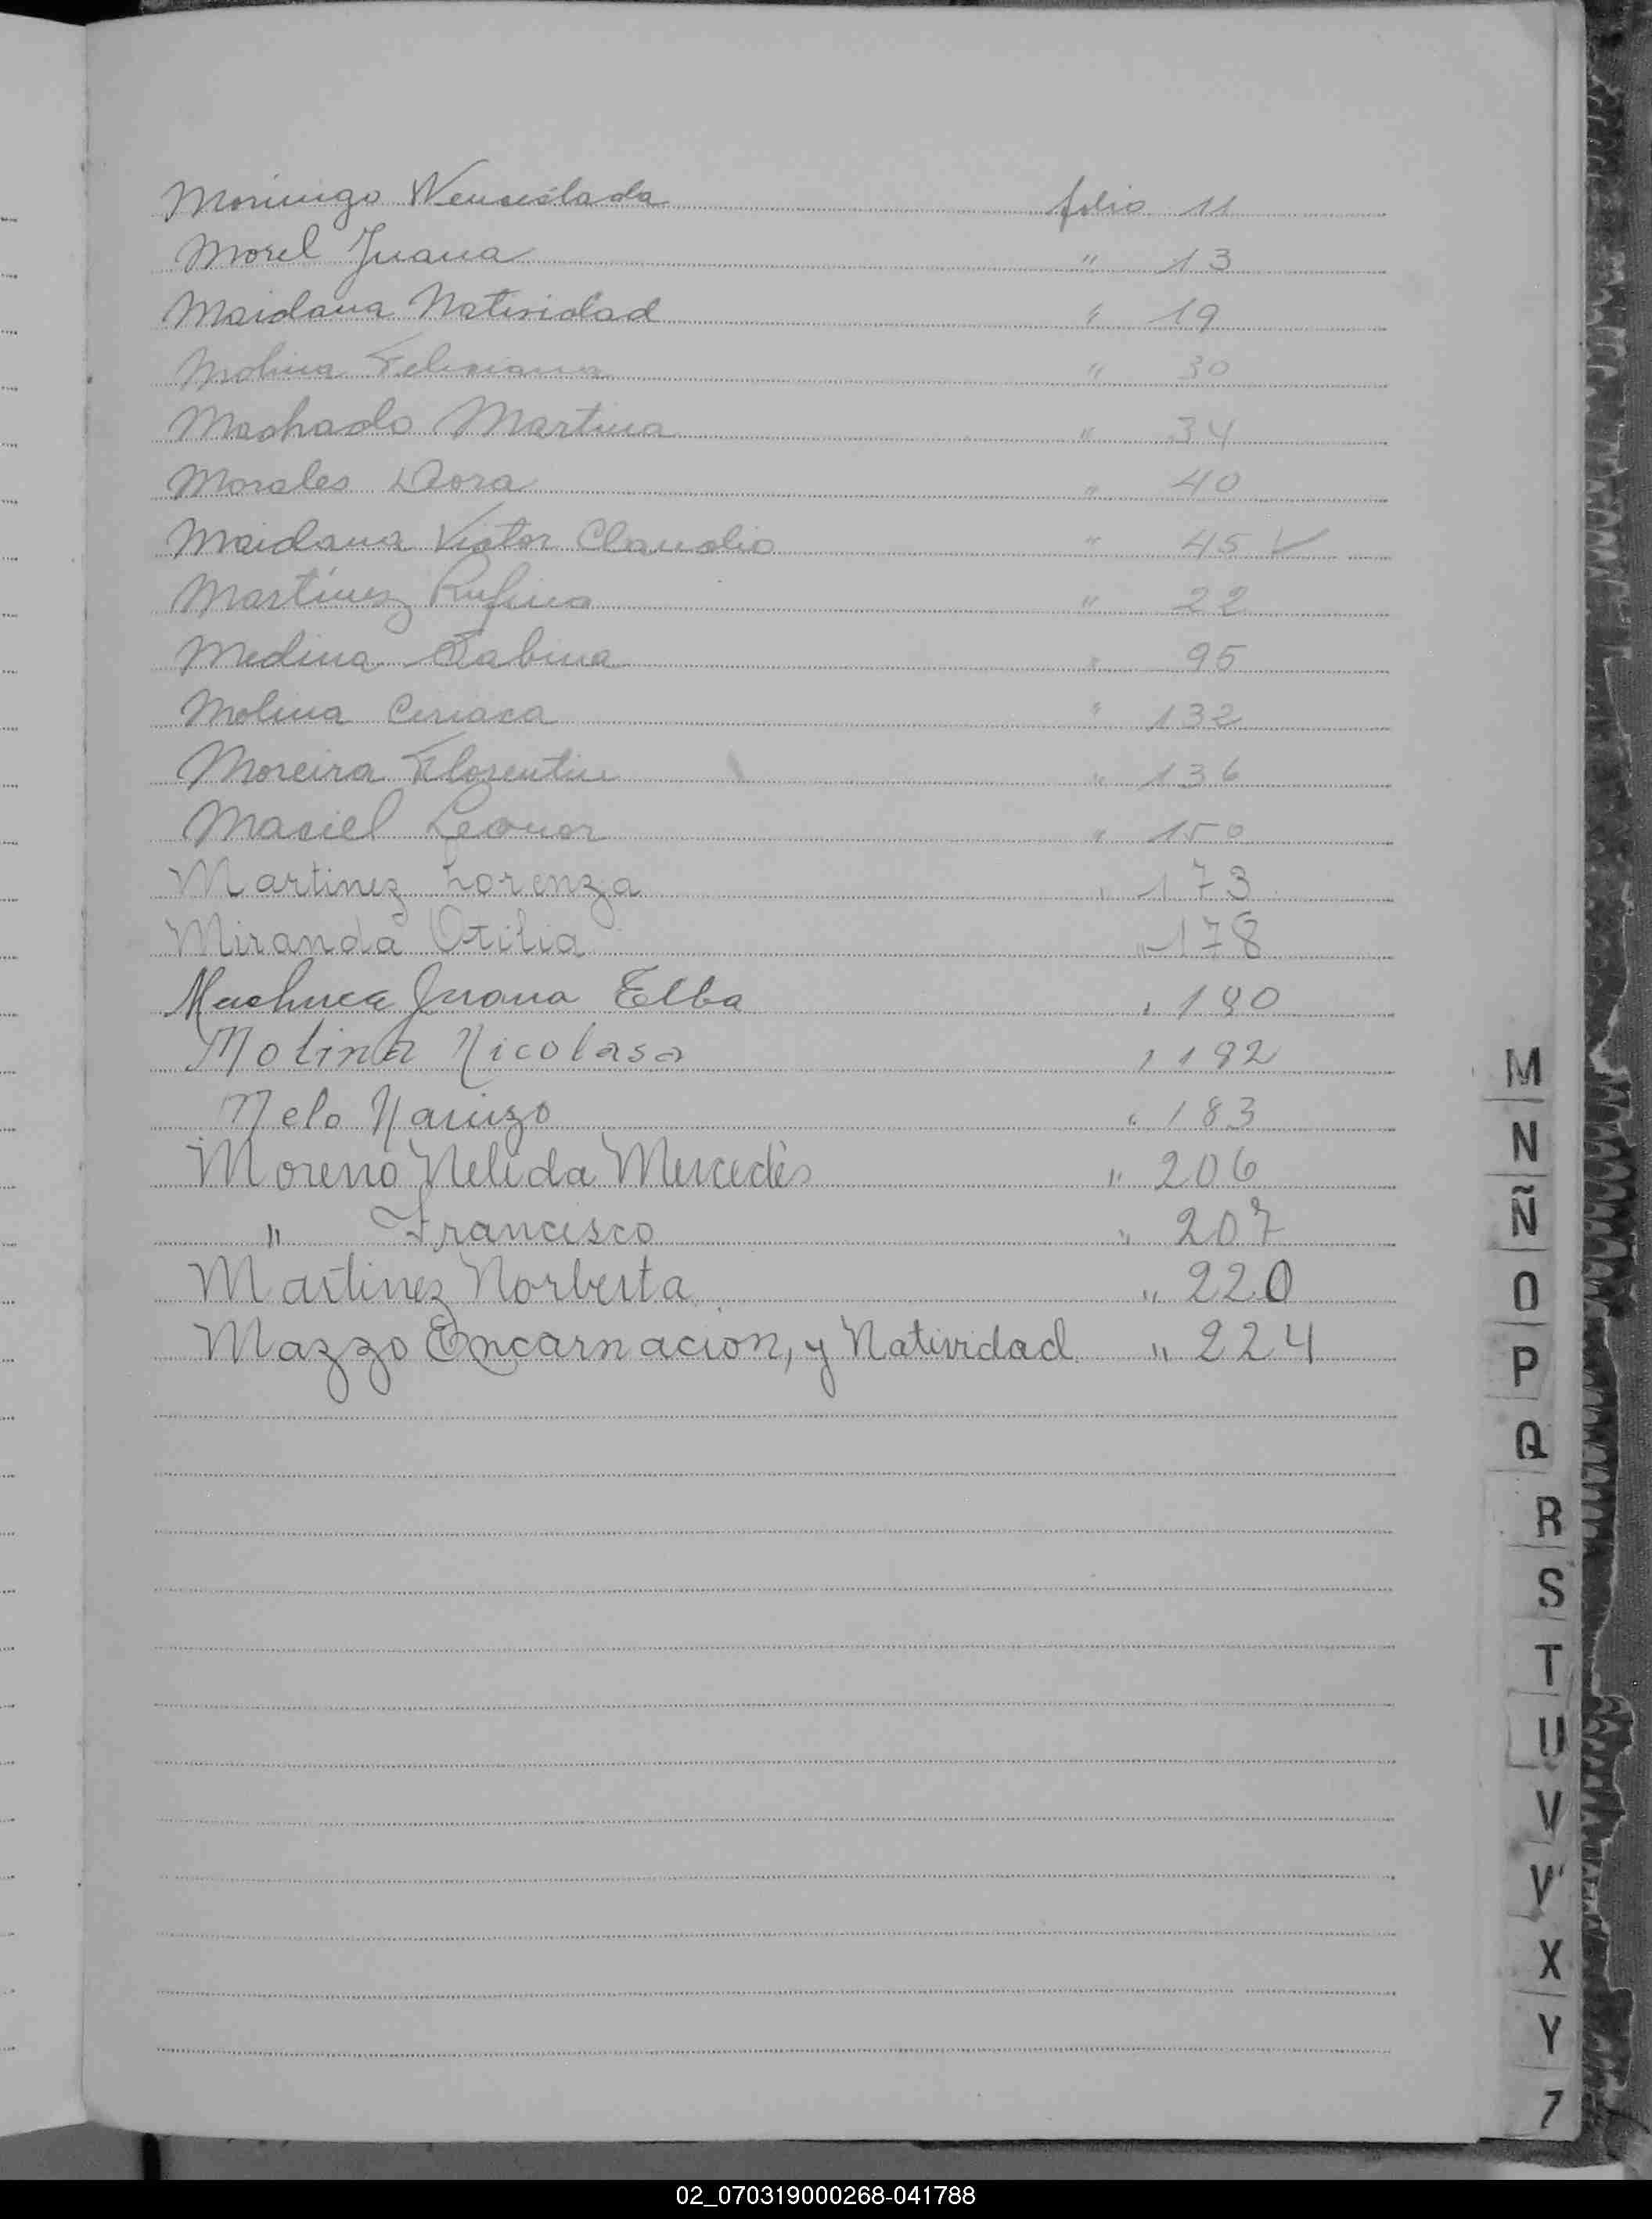 Moringo Wenceslada folio 11
Morel Juana " 13
Maidana Natividad " 19
Molina Feliciana " 30
Machado Martina " 34
Morales Dora " 40
Maidana Victor Claudio " 45 V
Martínez Rufina " 22
Medina Sabina " 95
Molina Ciriaca " 132
Moreira Florentin " 136
Maciel Leonor " 150
Martinez Lorenza " 173
Miranda Otilia " 178
Machuca Juana Elba " 180
Molina Nicolasa " 182
Melo Narizo " 183
Moreno Nelida Mercedes " 206
" Francisco " 207
Martinez Norberta " 220
Mazzo Encarnacion, y Natividad " 224
M
N
Ñ
O
P
Q
R
S
T
U
V
W
X
Y
Z
02_070319000268-041788